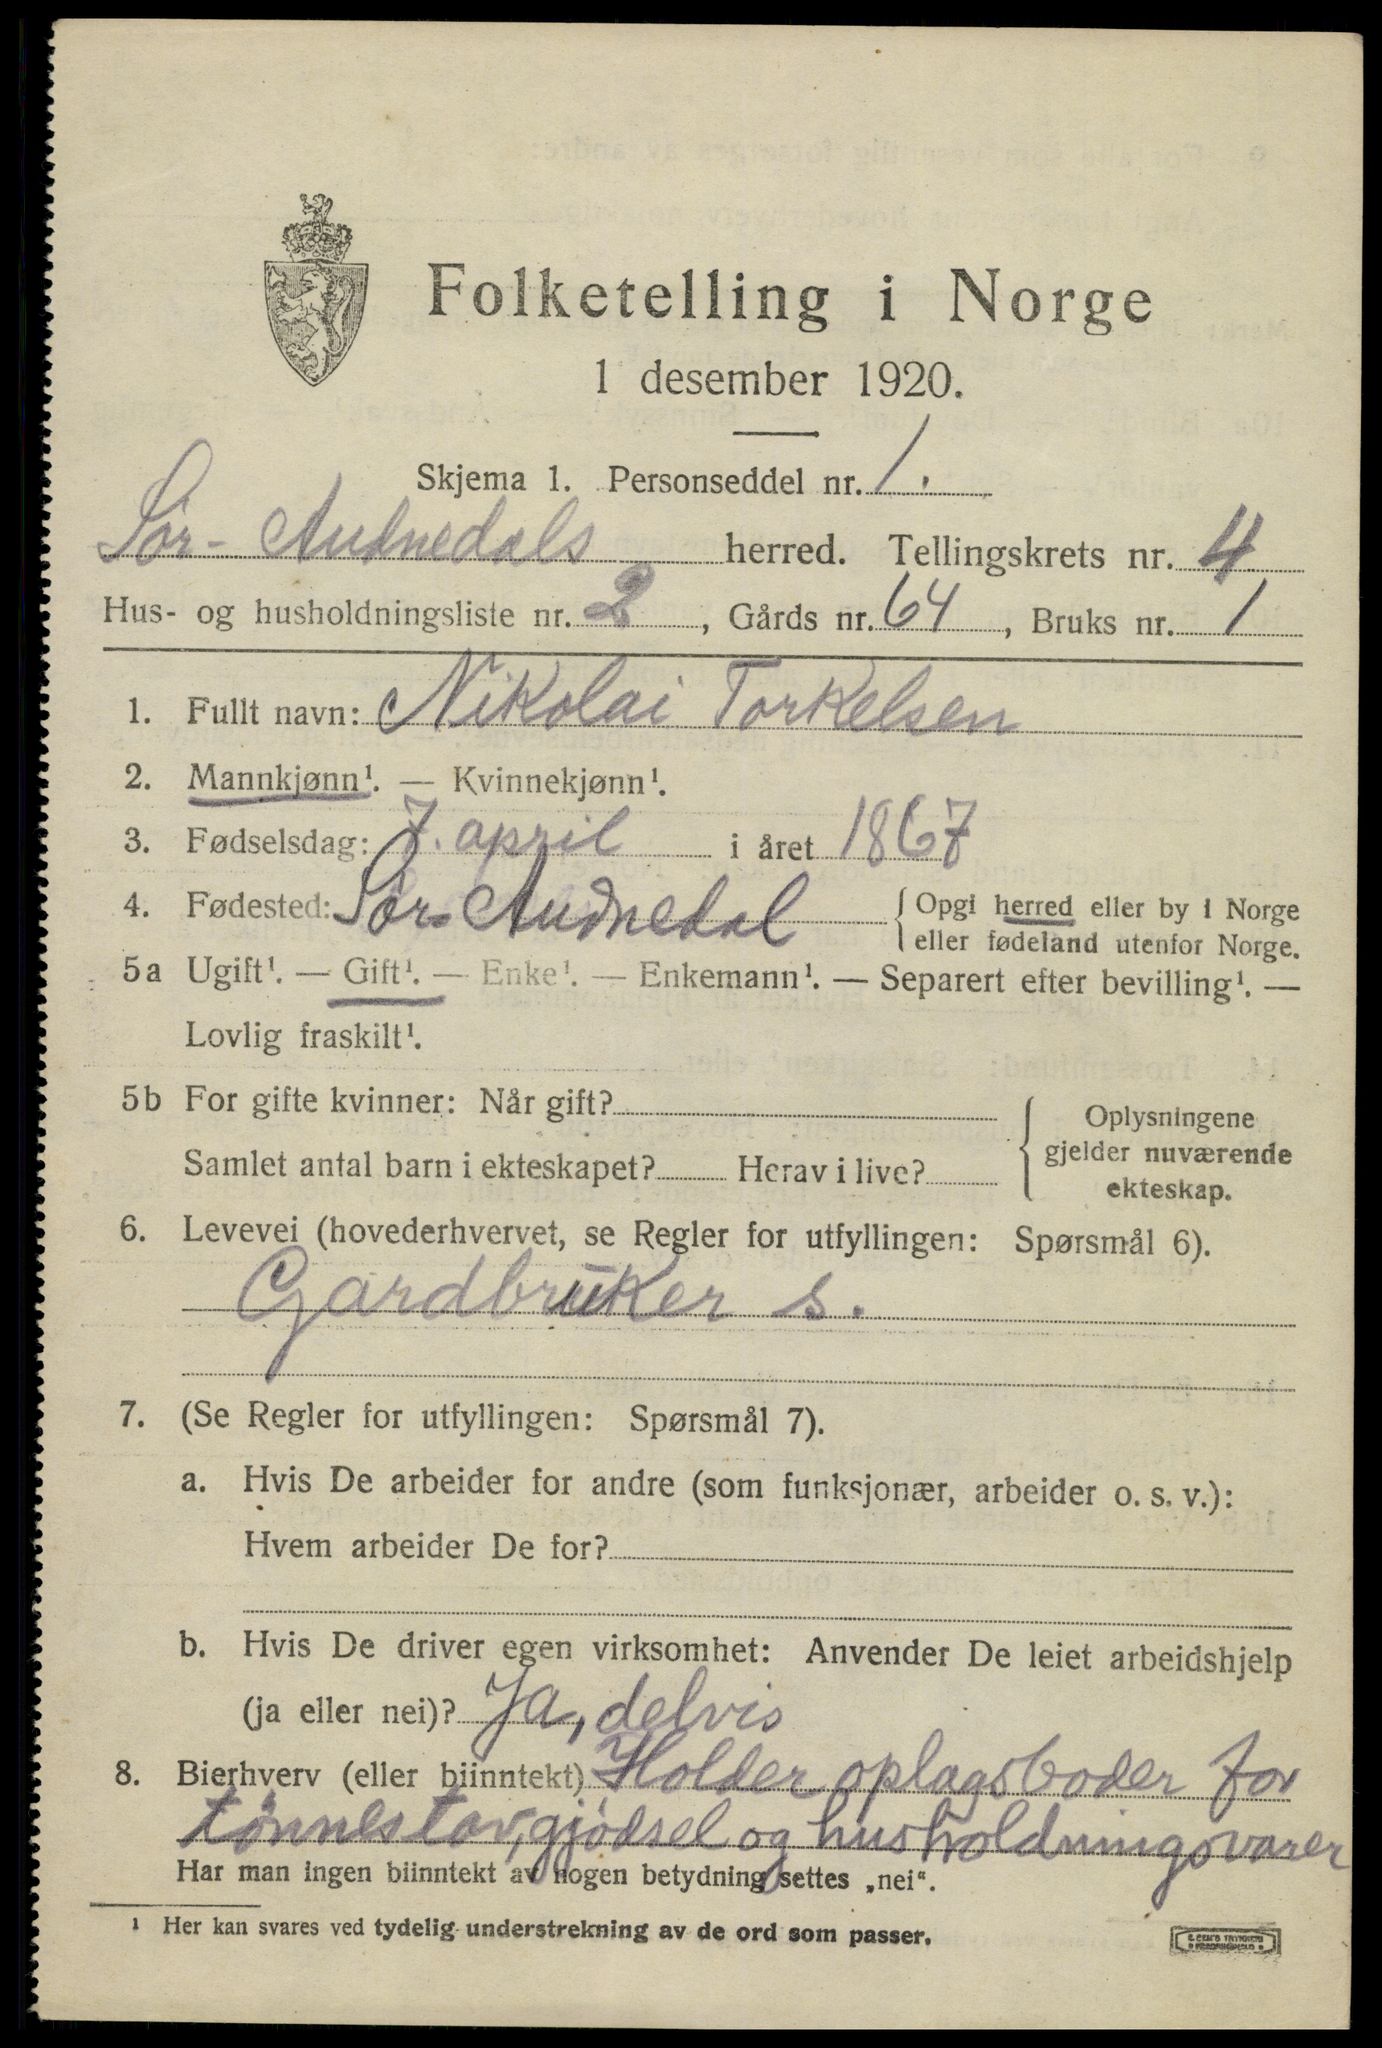 Folketelling i Norge
1 desember 1920.
Skjema 1. Personseddel nr. 1.
Sør-Audnedals herred. Tellingskrets nr. 4
Hus- og husholdningsliste nr. 2, Gårds nr. 64, Bruks nr. 1
1. Fullt navn: Nikolai Torkelsen
2. Mannkjønn¹. — Kvinnekjønn¹.
3. Fødselsdag: 7. april i året 1867
4. Fødested: Sør-Audnedal { Opgi herred eller by i Norge
eller fødeland utenfor Norge.
5a Ugift¹. — Gift¹. — Enke¹. — Enkemann¹. — Separert efter bevilling¹. —
Lovlig fraskilt¹.
5b For gifte kvinner: Når gift? { Oplysningene
gjelder nuværende
Samlet antal barn i ekteskapet? Herav i live?
ekteskap.
6. Levevei (hovederhvervet, se Regler for utfyllingen: Spørsmål 6).
Gjardbruker s.
7. (Se Regler for utfyllingen: Spørsmål 7).
a. Hvis De arbeider for andre (som funksjonær, arbeider o. s. v.):
Hvem arbeider De for?
b. Hvis De driver egen virksomhet: Anvender De leiet arbeidshjelp
(ja eller nei)? Ja, delvis
8. Bierhverv (eller biinntekt) Holder oplagsboder for
tønnestav, gjødsel og husholdningsvarer
Har man ingen biinntekt av nogen betydning settes „nei“.
¹ Her kan svares ved tydelig understrekning av de ord som passer.